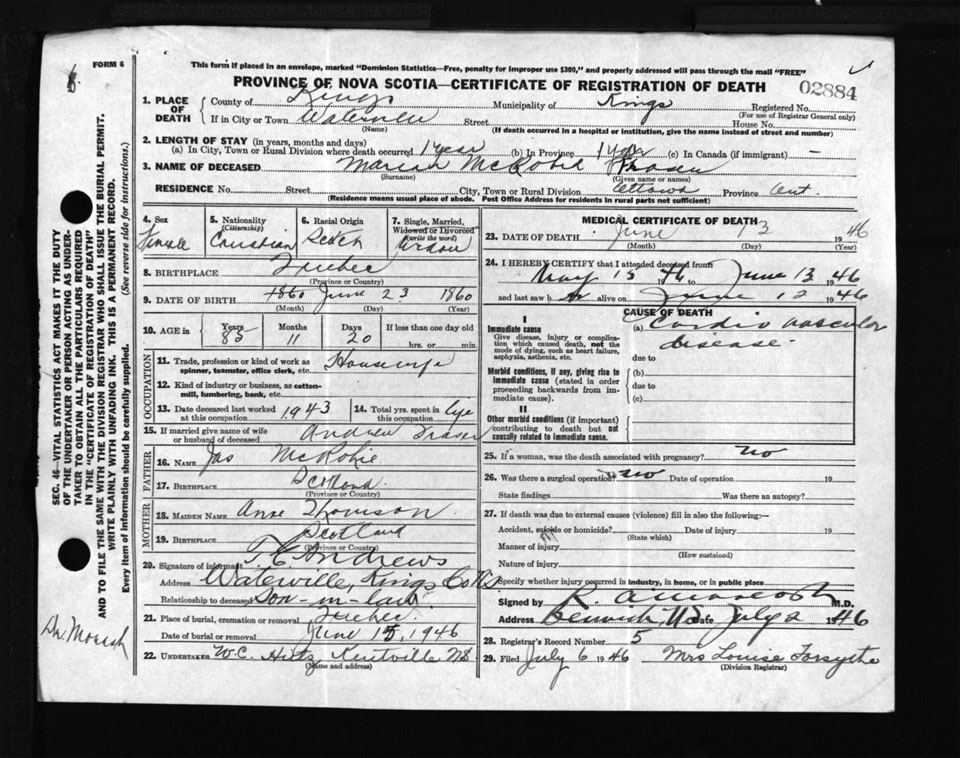 FORM 6
This form if placed in an envelope, marked "Dominion Statistics—Free, penalty for improper use $300," and properly addressed will pass through the mail "FREE"
PROVINCE OF NOVA SCOTIA—CERTIFICATE OF REGISTRATION OF DEATH
02884
1. PLACE OF DEATH { County of Kings Municipality of Kings Registered No.
(For use of Registrar General only)
If in City or Town Waterville Street House No.
(Name) (If death occurred in a hospital or institution, give the name instead of street and number)
2. LENGTH OF STAY (in years, months and days)
(a) In City, Town or Rural Division where death occurred 1 year (b) In Province 1 year (c) In Canada (if immigrant) —
3. NAME OF DECEASED McRobie Fraser
(Surname) (Given name or names)
RESIDENCE No. Street City, Town or Rural Division Ottawa Province Ont.
(Residence means usual place of abode. Post Office Address for residents in rural parts not sufficient)
4. Sex Female
5. Nationality (Citizenship) Canadian
6. Racial Origin Scotch
7. Single, Married, Widowed or Divorced (write the word) Widow
8. BIRTHPLACE Quebec
(Province or Country)
9. DATE OF BIRTH 1860 June 23 1860
(Month) (Day) (Year)
10. AGE in Years 85 Months 11 Days 20 If less than one day old hrs. or min.
OCCUPATION
11. Trade, profession or kind of work as spinner, teamster, office clerk, etc. Housewife
12. Kind of industry or business, as cotton-mill, lumbering, bank, etc.
13. Date deceased last worked at this occupation 1943 14. Total yrs. spent in this occupation life
15. If married give name of wife or husband of deceased Andrew Fraser
FATHER
16. NAME Jas McRobie
17. BIRTHPLACE Scotland
(Province or Country)
MOTHER
18. MAIDEN NAME Anne Thomson
19. BIRTHPLACE Scotland
(Province or Country)
20. Signature of informant T. C. Andrews
Address Waterville, Kings Co N.S
Relationship to deceased Son-in-law
21. Place of burial, cremation or removal Quebec
Date of burial or removal June 15, 1946
22. UNDERTAKER W.C. Hiltz Kentville NS
(Name and address)
MEDICAL CERTIFICATE OF DEATH
23. DATE OF DEATH June 13 1946
(Month) (Day) (Year)
24. I HEREBY CERTIFY that I attended deceased from
May 15 1946 to June 13 1946
and last saw her alive on June 12 1946
CAUSE OF DEATH
I
Immediate cause
Give disease, injury or complication which caused death, not the mode of dying, such as heart failure, asphyxia, asthenia, etc.
(a) Cardio vascular disease.
due to
Morbid conditions, if any, giving rise to immediate cause (stated in order proceeding backwards from immediate cause)
(b)
due to
(c)
II
Other morbid conditions (if important) contributing to death but not causally related to immediate cause.
25. If a woman, was the death associated with pregnancy? no
26. Was there a surgical operation? no Date of operation 19
State findings Was there an autopsy?
27. If death was due to external causes (violence) fill in also the following:—
Accident, suicide or homicide? Date of injury 19
(State which)
Manner of injury
(How sustained)
Nature of injury
Specify whether injury occurred in industry, in home, or in public place
Signed by M.D.
Address Berwick NS Date July 2 1946
28. Registrar's Record Number 5
29. Filed July 6 1946 Mrs Louise Forsythe
(Division Registrar)
SEC. 46—VITAL STATISTICS ACT MAKES IT THE DUTY
OF THE UNDERTAKER OR PERSON ACTING AS UNDER-
TAKER TO OBTAIN ALL THE PARTICULARS REQUIRED
IN THE "CERTIFICATE OF REGISTRATION OF DEATH"
AND TO FILE THE SAME WITH THE DIVISION REGISTRAR WHO SHALL ISSUE THE BURIAL PERMIT.
WRITE PLAINLY WITH UNFADING INK. THIS IS A PERMANENT RECORD.
Every item of information should be carefully supplied. (See reverse ride for instructions.)